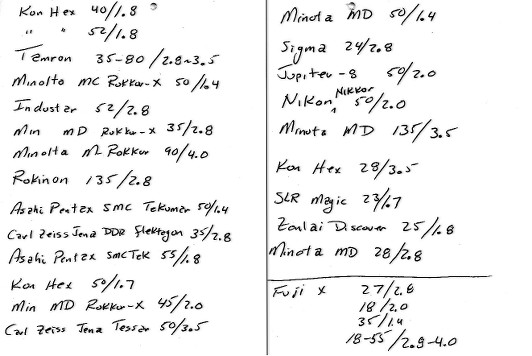 Kon Hex 40/1.8
" " 52/1.8
Tamron 35-80/2.8-3.5
Minolta MC Rokkor-X 50/1.4
Industar 52/2.8
Min MD Rokkor-X 35/2.8
Minolta M-Rokkor 90/4.0
Rokinon 135/2.8
Asahi Pentax SMC Takumar 50/1.4
Carl Zeiss Jena DDR Flektogon 35/2.8
Asahi Pentax SMC Tak 55/1.8
Kon Hex 50/1.7
Min MD Rokkor-X 45/2.0
Carl Zeiss Jena Tessar 50/3.5
Minolta MD 50/1.4
Sigma 24/2.8
Jupiter-8 50/2.0
Nikon Nikkor 50/2.0
Minolta MD 135/3.5
Kon Hex 28/3.5
SLR Magic 23/1.7
Zonlai Discover 25/1.8
Minolta MD 28/2.8
Fuji X 27/2.8
18/2.0
35/1.4
18-55/2.8-4.0